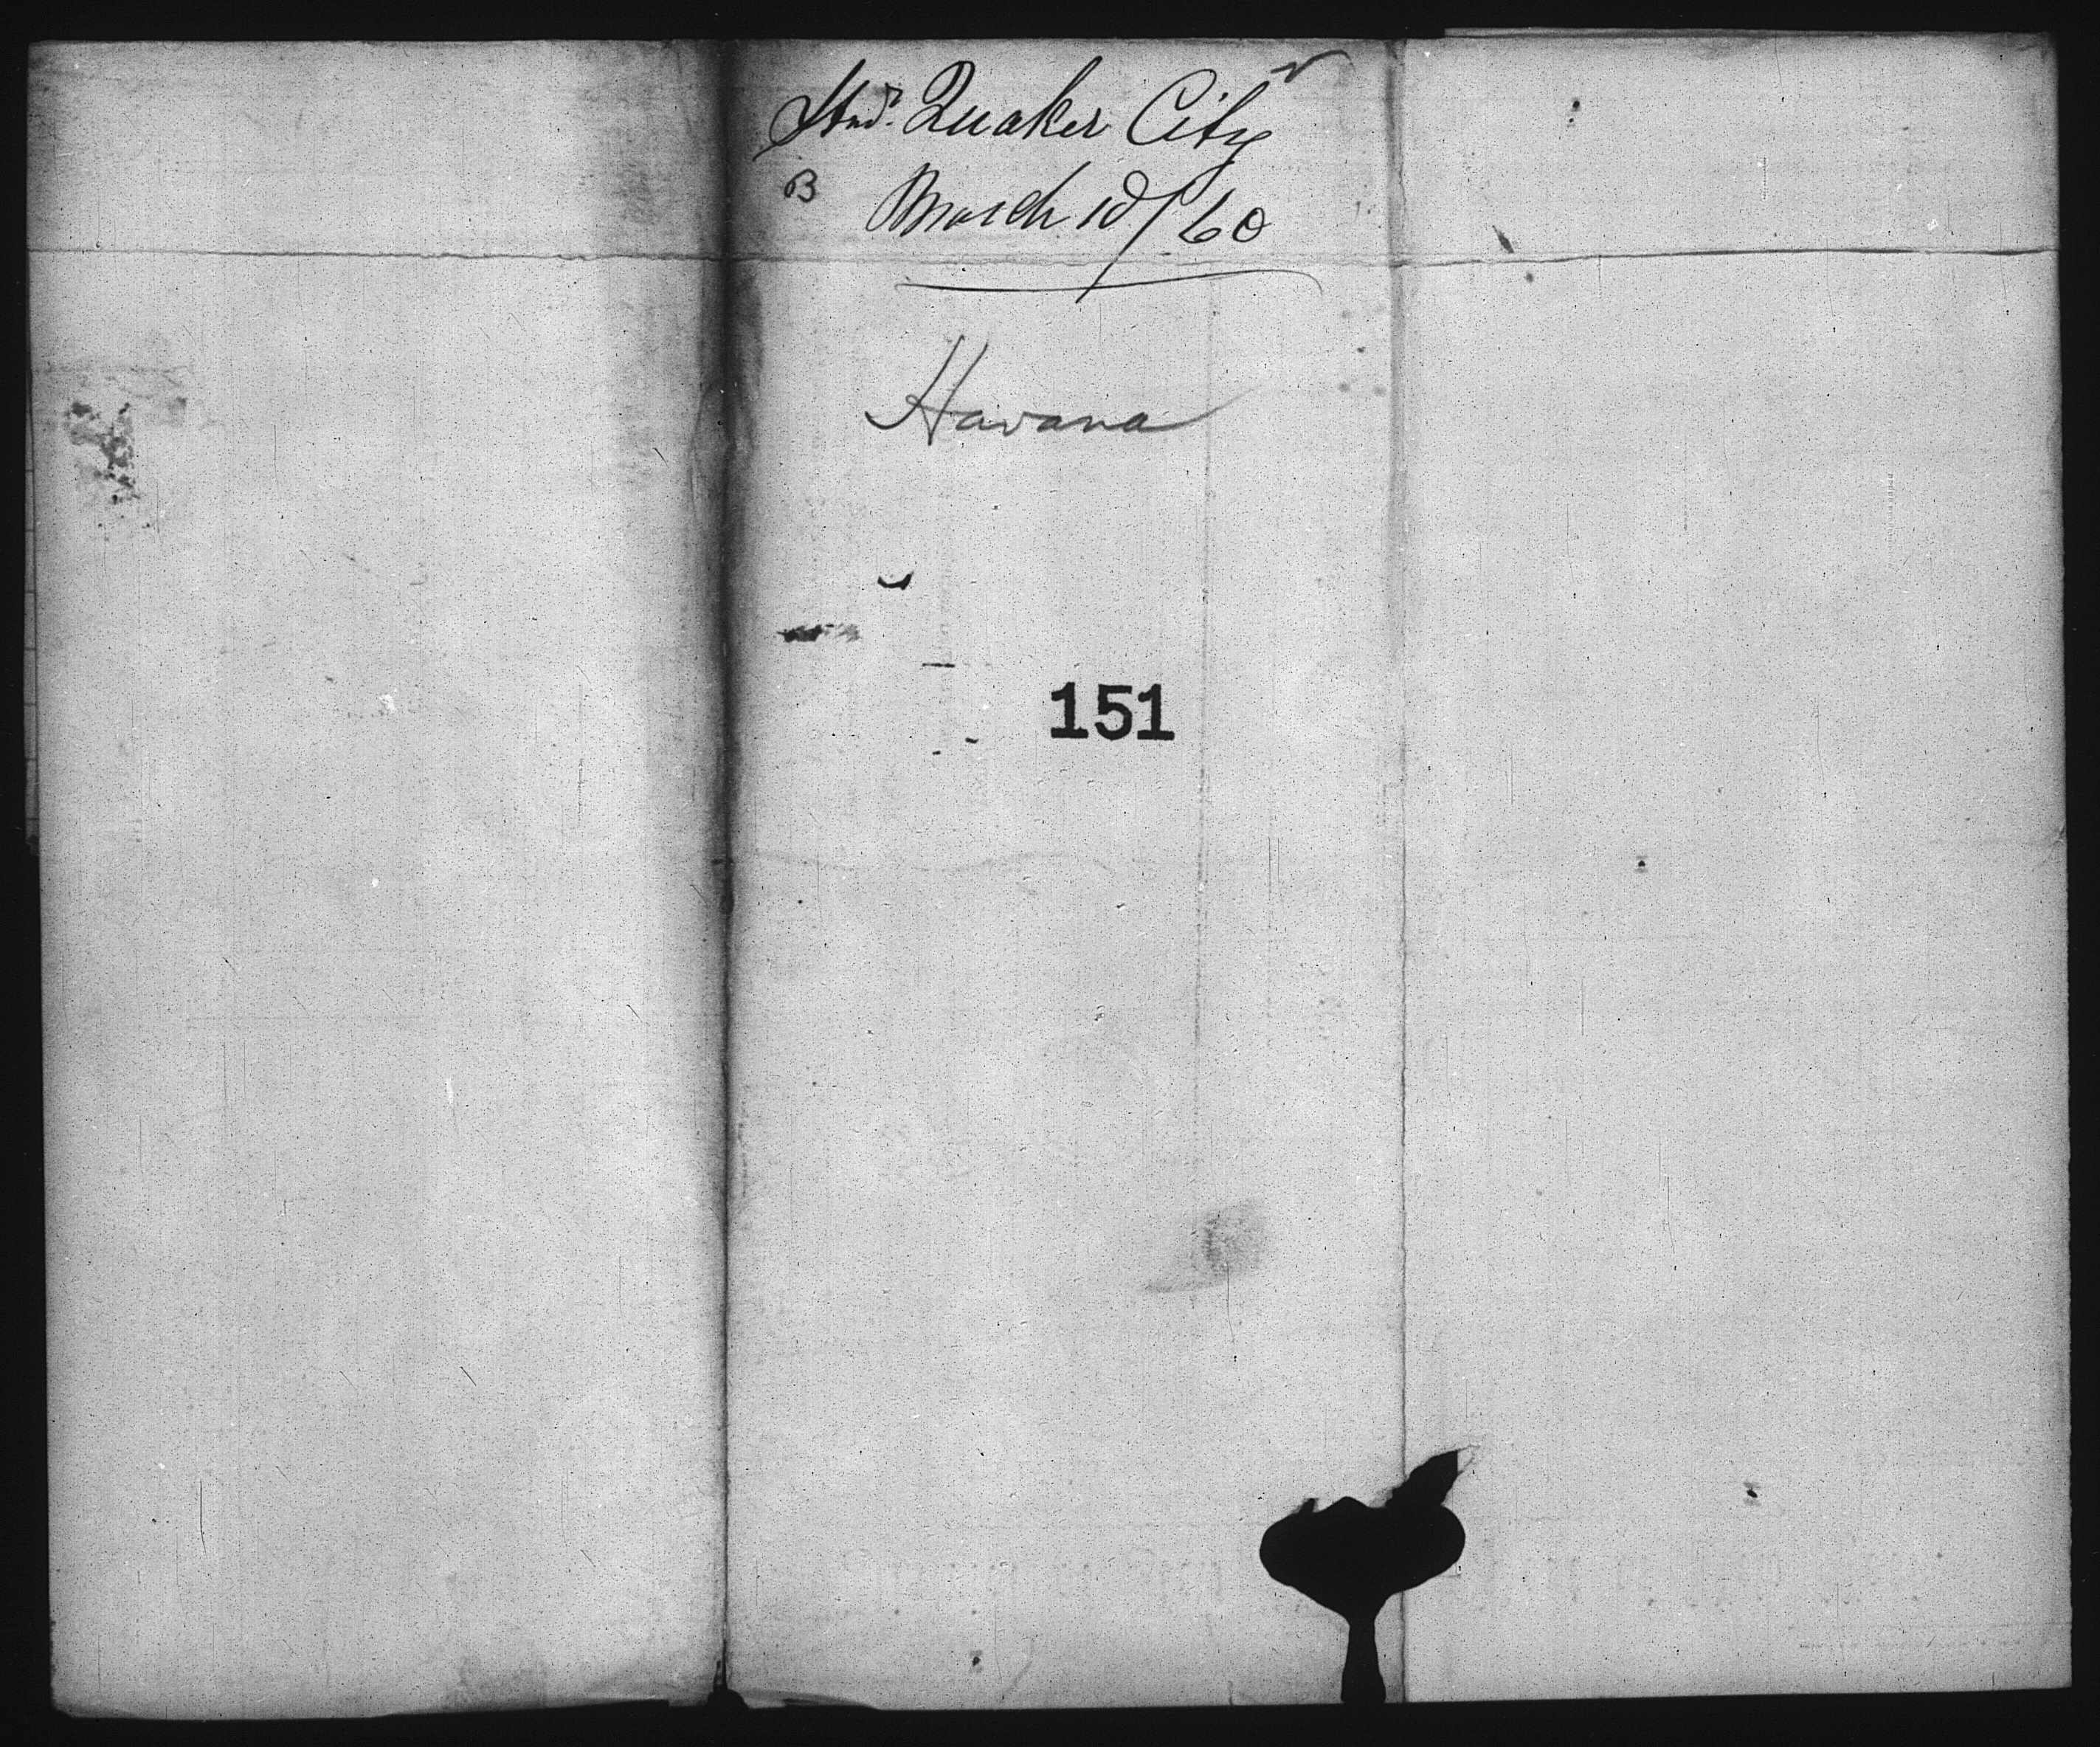 Stmr. Quaker City
B March 10/60
Havana
151